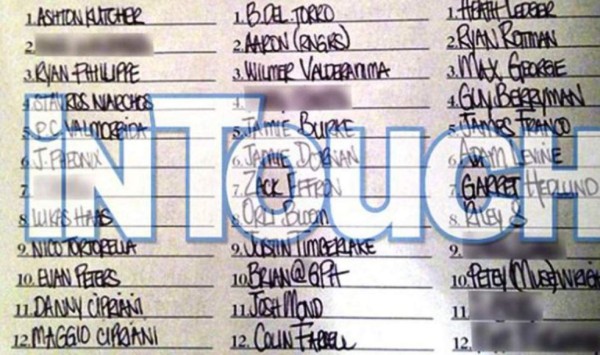 1. ASHTON KUTCHER
2.
3. RYAN PHILIPPE
4. STAVROS NIARCHOS
5. P.C. VALMORBIDA
6. J. PHEONIX
7.
8. LUKAS HAAS
9. NICO TORTORELLA
10. EVAN PETERS
11. DANNY CIPRIANI
12. MAGGIO CIPRIANI
1. B. DEL TORRO
2. AARON (RNGRS)
3. WILMER VALDERAMA
4.
5. JAMIE BURKE
6. JAMIE DORNAN
7. ZACK EFRON
8. ORLI BLOOM
9. JUSTIN TIMBERLAKE
10. BRIAN@GPH
11. JOSH MOND
12. COLIN FARRELL
1. HEATH LEDGER
2. RYAN ROTTMAN
3. MAX GEORGE
4. GUY BERRYMAN
5. JAMES FRANCO
6. ADAM LEVINE
7. GARRET HEDLUND
8. RILEY S
9.
10. PETEY (MUSE) WRIGH
11.
12.
INTOUCH